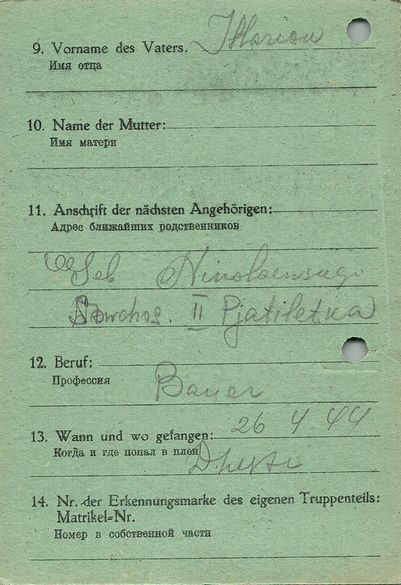 9. Vorname des Vaters. Illarion
Имя отца
10. Name der Mutter:
Имя матери
11. Anschrift der nächsten Angehörigen:
Адрес ближайших родственников
Geb
Sowchos. II Pjatiletka
12. Beruf:
Профессия
Bauer
13. Wann und wo gefangen: 26 4 44
Когда и где попал в плен
14. Nr. der Erkennungsmarke des eigenen Truppenteils:
Matrikel=Nr.
Номер в собственной части